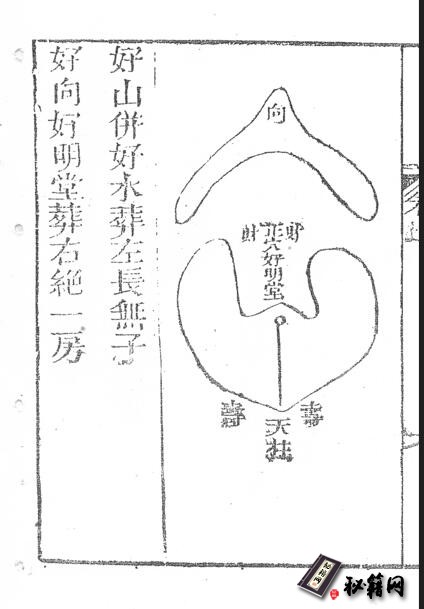 向
財
正穴好明堂
財
壽
天柱
壽
好山併好水葬左長無子
好向好明堂葬右絕二房
秘籍网